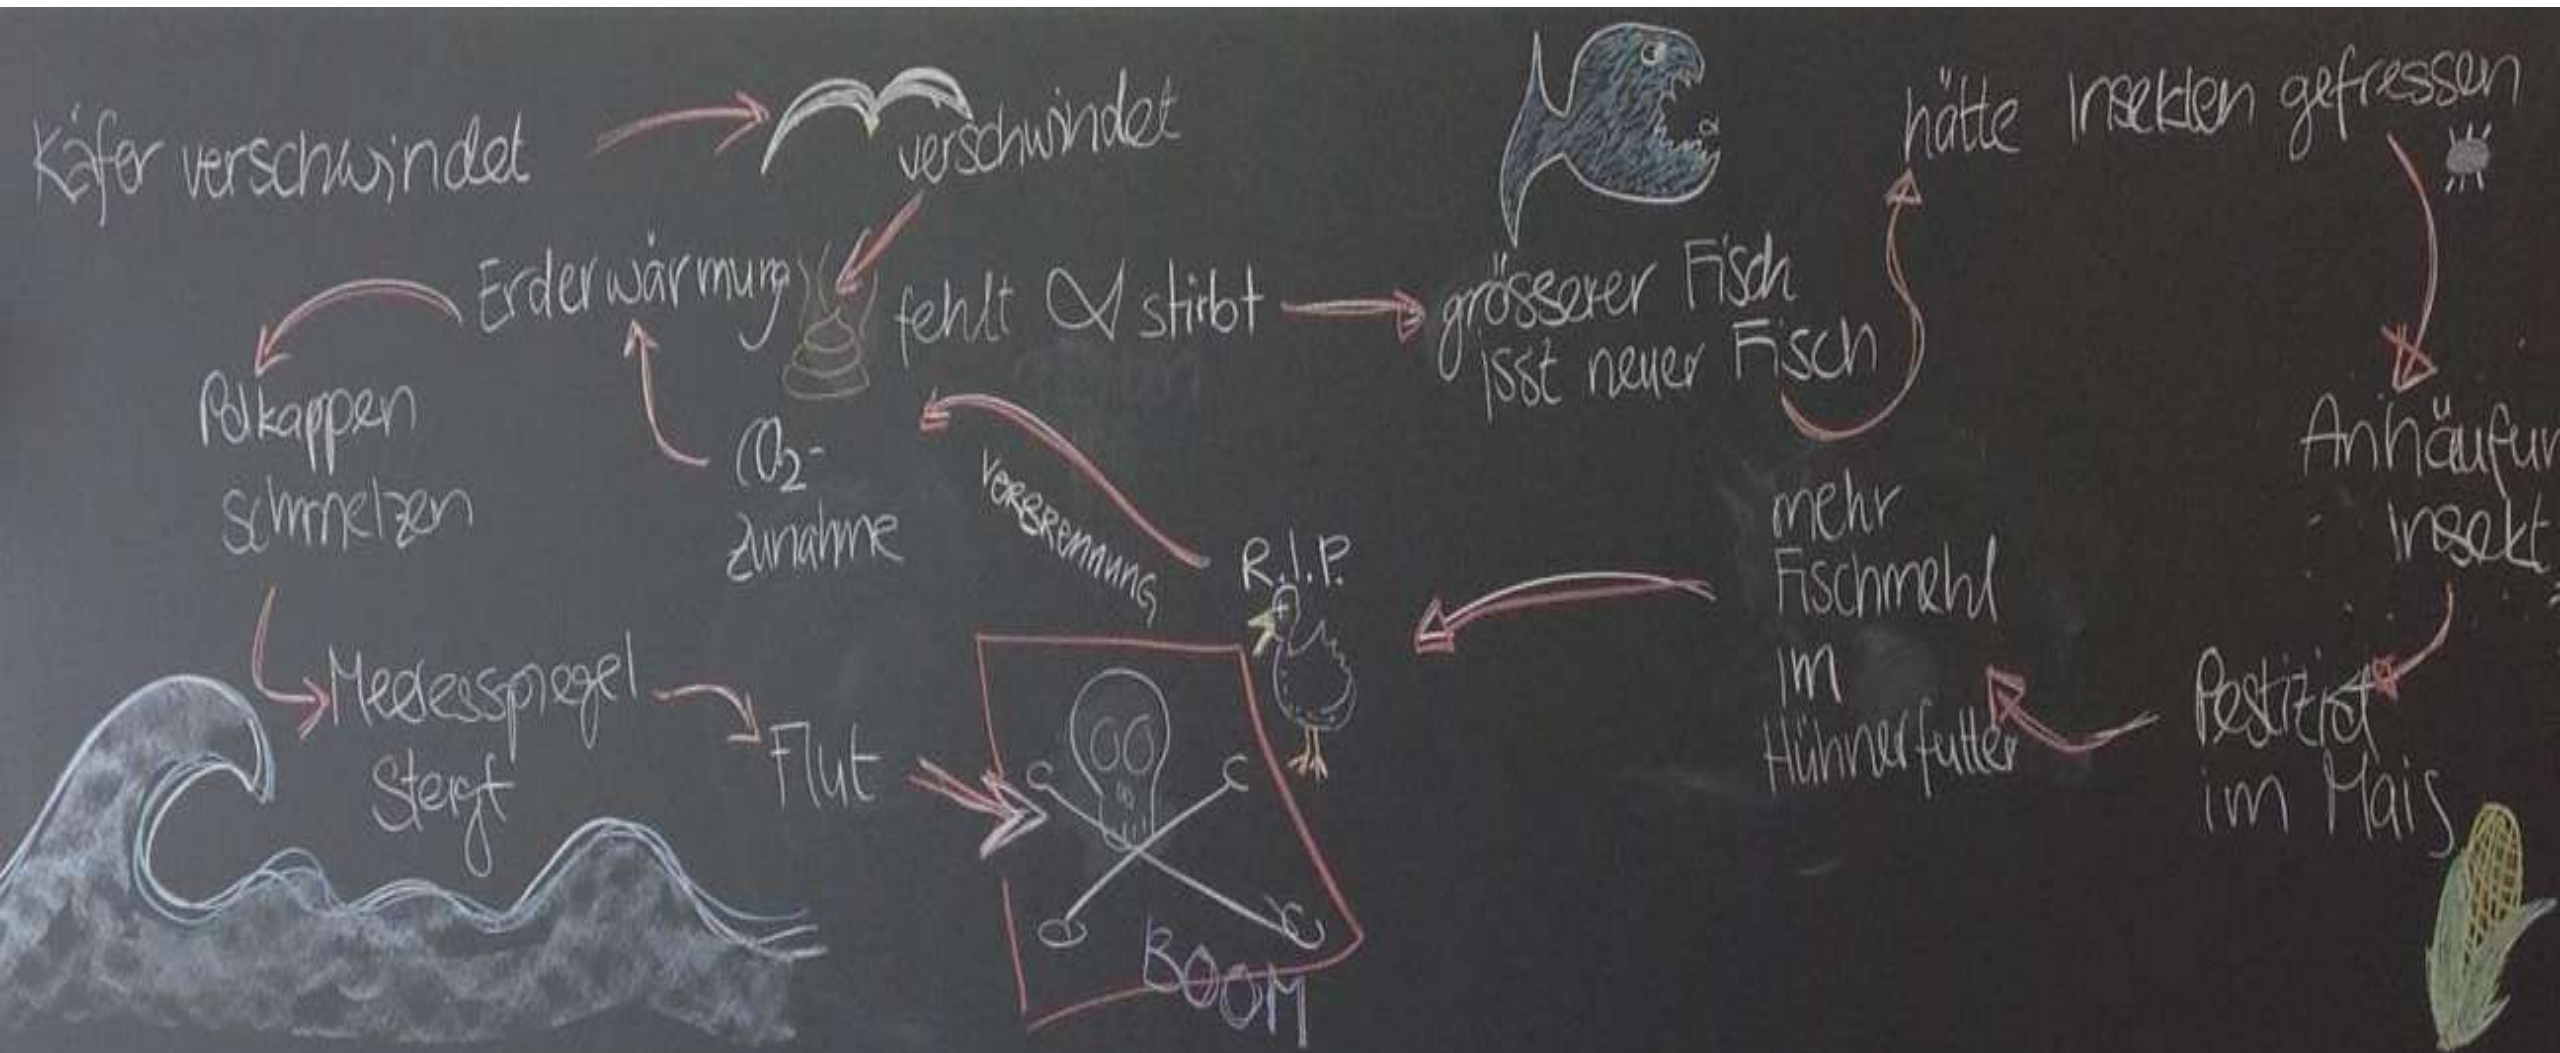 Käfer verschwindet
verschwindet
fehlt
stirbt
grösserer Fisch
isst neuer Fisch
hätte Insekten gefressen
Anhäufun
Insekt
Pestizid
im Mais
mehr
Fischmehl
im
Hühnerfutter
R.I.P.
VERBRENNUNG
CO2-
Zunahme
Erderwärmung
Polkappen
schmelzen
Meeresspiegel
steigt
Flut
BOOM